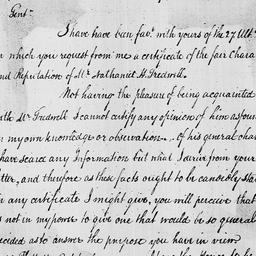 Gent.
I have have been fav.d with yours of the 27 Ulto.
in which you request from me a certificate of the fair Chara
and Reputation of Mr. Nathaniel H. Treadwell.
Not having the pleasure of being acquainted
with Mr. Treadwell I cannot certify any opinion of him as foun
in my own knowledge or observation. Of his general char
have scarce any Information but what I derive from your
letter, and therefore as these facts ought to be candidly sta
in any certificate I might give, you will perceive that
is not in my power to give one that would be so general
decided as to answer the purpose you have in view